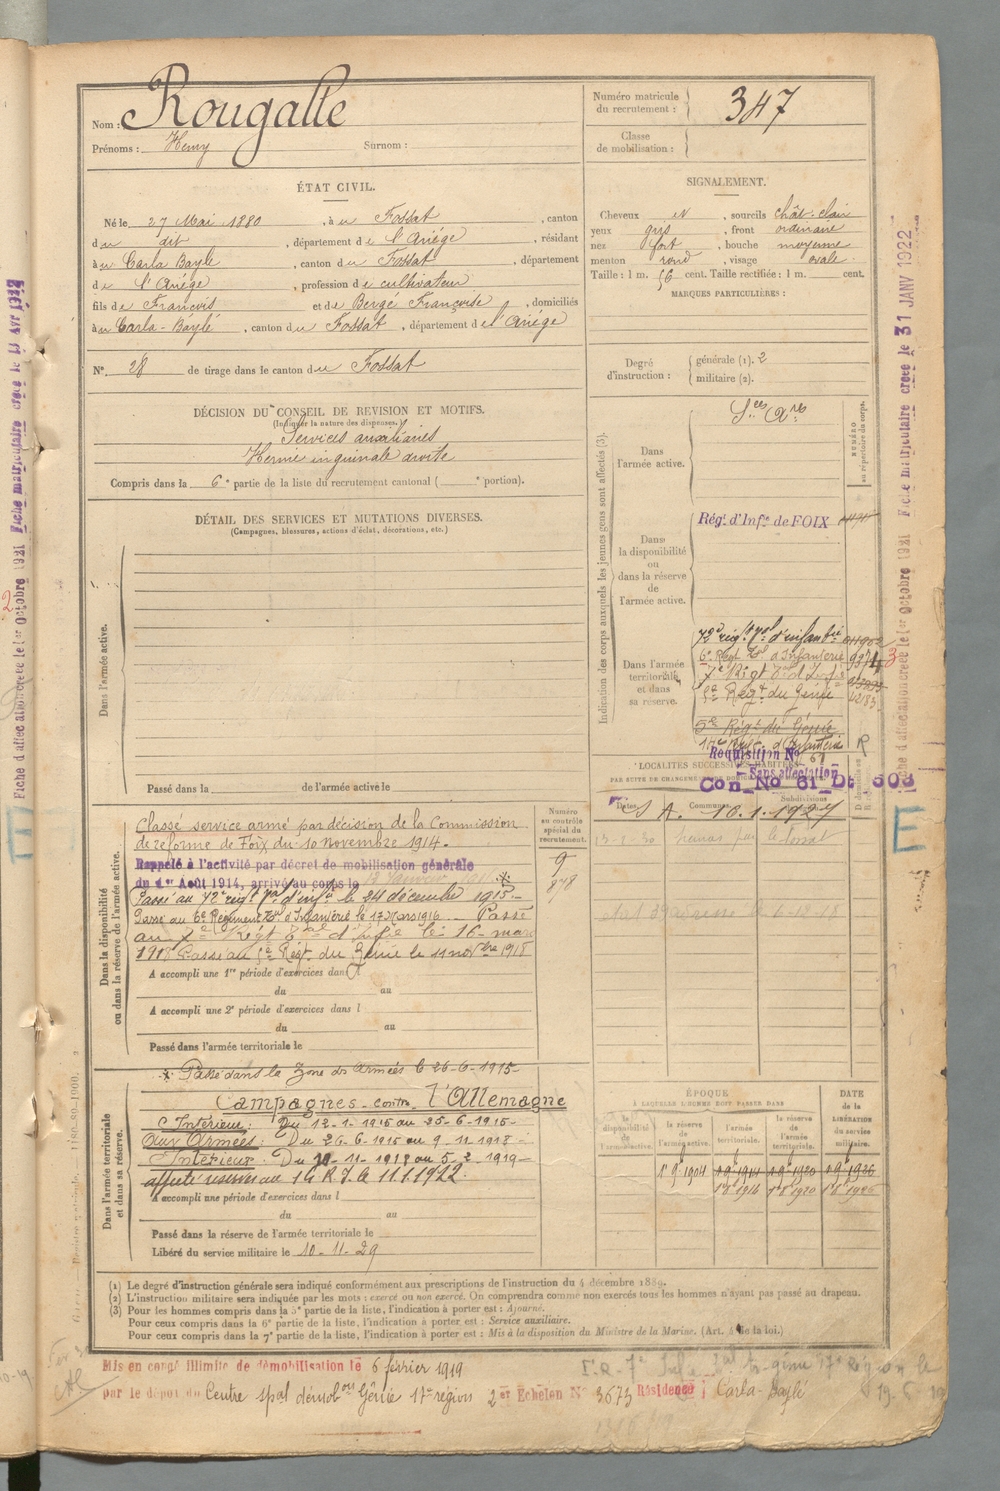 Nom : Rougalle
Prénoms : Henry Surnom :
Numéro matricule
du recrutement : 347
Classe
de mobilisation :
ÉTAT CIVIL.
Né le 27 Mai 1880, à u Fossat, canton
du dit, département de l'Ariége, résidant
à u Carla Bayle, canton du Fossat, département
de l'Ariége, profession de cultivateur
fils de François et de Bergé Françoise, domiciliés
à u Carla-Baylé, canton du Fossat, département de l'Ariége
N° 28 de tirage dans le canton du Fossat
SIGNALEMENT.
Cheveux et, sourcils chât-clair
yeux gris, front ordinaire
nez fort, bouche moyenne
menton rond, visage ovale.
Taille : 1 m. 56 cent. Taille rectifiée : 1 m. cent.
MARQUES PARTICULIÈRES :
Degré
d'instruction :
générale (1). 2
militaire (2).
DÉCISION DU CONSEIL DE REVISION ET MOTIFS.
(Indiquer la nature des dispenses.)
Services auxiliaires
Hernie inguinale droite
Compris dans la 6e partie de la liste du recrutement cantonal ( e portion).
DÉTAIL DES SERVICES ET MUTATIONS DIVERSES.
(Campagnes, blessures, actions d'éclat, décorations, etc.)
Dans l'armée active.
Passé dans la de l'armée active le
Indication des corps auxquels les jeunes gens sont affectés (3).
NUMÉRO
au répertoire du corps.
Dans
l'armée active.
Sces Axres
Dans
la disponibilité
ou
dans la réserve
de
l'armée active.
Rég. d'Infie de FOIX
Dans l'armée
territoriale
et dans
sa réserve.
72e régt tal d'infanterie
6e Régt Tal d'Infanterie 9974
7e Régt Tal d'Infie
5e Régt du Génie
5e Régt du Génie
14e Régt d'Infanterie R
Requisition N° 61
Sans affectation
Con No 61 Dt 503
LOCALITÉS SUCCESSIVES HABITÉES
Dates Communes Subdivisions
S A. 10.1.1927
Dans la disponibilité
ou dans la réserve de l'armée active.
Numéro
au contrôle
spécial du
recrutement.
9
878
Classé service armé par décision de la Commission
de réforme de Foix du 10 novembre 1914.
Rappelé à l'activité par décret de mobilisation générale
du 1er Août 1914, arrivé au corps le
Passé au 72e régt tal d'infie le 24 décembre 1915.
Passé au 6e Régiment Tal d'Infanterie le 17 Mars 1916. Passé
au 7e Régt Tal d'Infie le 16 mars
1918 Passé au 5e Régt du Génie le 11 novbre 1918
A accompli une 1re période d'exercices dans l
du au
A accompli une 2e période d'exercices dans l
du au
Passé dans l'armée territoriale le
Passé dans la Zone des Armées le 26-6-1915
Dans l'armée territoriale
et dans sa réserve.
Campagnes contre l'Allemagne
C. Intérieur : Du 12-1-1915 au 25-6-1915
Aux Armées : Du 26-6-1915 au 9-11-1918
Intérieur : Du 10-11-1918 au 5-2-1919
affecté réserve au 14 R.I. le 11.1.1922
A accompli une période d'exercices dans l
du au
Passé dans la réserve de l'armée territoriale le
Libéré du service militaire le 10-11-29
ÉPOQUE
À LAQUELLE L'HOMME DOIT PASSER DANS
la disponibilité de l'armée active.
la réserve de l'armée active.
l'armée territoriale.
la réserve de l'armée territoriale.
DATE de la LIBÉRATION du service militaire.
1er 9bre 1904 1er 9bre 1914 1er 9bre 1920 1er 9bre 1926
1er 8bre 1916 1er 8bre 1920 1er 8bre 1926
(1) Le degré d'instruction générale sera indiqué conformément aux prescriptions de l'instruction du 4 décembre 1889.
(2) L'instruction militaire sera indiquée par les mots : exercé ou non exercé. On comprendra comme non exercés tous les hommes n'ayant pas passé au drapeau.
(3) Pour les hommes compris dans la 5e partie de la liste, l'indication à porter est : Ajourné.
Pour ceux compris dans la 6e partie de la liste, l'indication à porter est : Service auxiliaire.
Pour ceux compris dans la 7e partie de la liste, l'indication à porter est : Mis à la disposition du Ministre de la Marine. (Art. 4 de la loi.)
Mis en congé illimité de démobilisation le 6 février 1919
par le dépôt du Centre spal démobon Génie 17e région 2er Échelon N° 3673 Résidence Carla-Baylé
Fiche d'affectation créée le 1er Octobre 1921 Fiche matriculaire créée le 31 JANV 1922
E